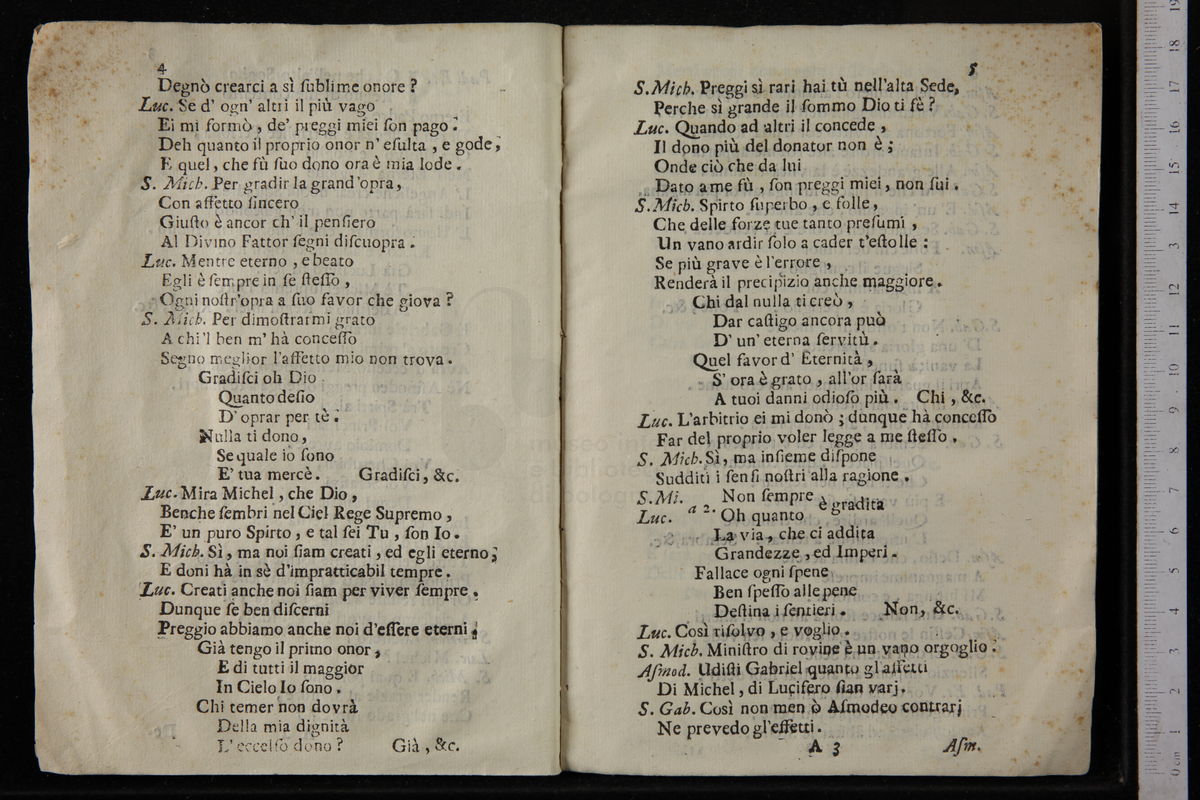 4
Degnò crearci a sì ſublime onore ?
Luc. Se d' ogn' altri il più vago
Ei mi formò , de' preggi miei ſon pago .
Deh quanto il proprio onor n' eſulta , e gode ,
E quel , che fù ſuo dono ora è mia lode .
S. Mich. Per gradir la grand'opra ,
Con affetto ſincero
Giuſto è ancor ch' il penſiero
Al Divino Fattor ſegni diſcuopra .
Luc. Mentre eterno , e beato
Egli è ſempre in ſe ſteſſo ,
Ogni noſtr'opra a ſuo favor che giova ?
S. Mich. Per dimoſtrarmi grato
A chi'l ben m' hà conceſſo
Segno meglior l'affetto mio non trova .
Gradiſci oh Dio
Quanto deſio
D' oprar per tè .
Nulla ti dono ,
Se quale io ſono
E' tua mercè . Gradiſci , &c.
Luc. Mira Michel , che Dio ,
Benche ſembri nel Ciel Rege Supremo ,
E' un puro Spirto , e tal ſei Tu , ſon Io .
S. Mich. Sì , ma noi ſiam creati , ed egli eterno ;
E doni hà in sè d'impratticabil tempre .
Luc. Creati anche noi ſiam per viver ſempre .
Dunque ſe ben diſcerni
Preggio abbiamo anche noi d'eſſere eterni .
Già tengo il primo onor ,
E di tutti il maggior
In Cielo Io ſono .
Chi temer non dovrà
Della mia dignità
L' eccelſo dono ? Già , &c.
5
S. Mich. Preggi sì rari hai tù nell'alta Sede ,
Perche sì grande il ſommo Dio ti fè ?
Luc. Quando ad altri il concede ,
Il dono più del donator non è ;
Onde ciò che da lui
Dato a me fù , ſon preggi miei , non ſui .
S. Mich. Spirto ſuperbo , e folle ,
Che delle forze tue tanto preſumi ,
Un vano ardir ſolo a cader t'eſtolle :
Se più grave è l'errore ,
Renderà il precipizio anche maggiore .
Chi dal nulla ti creò ,
Dar caſtigo ancora può
D' un' eterna ſervitù .
Quel favor d' Eternità ,
S' ora è grato , all'or ſarà
A tuoi danni odioſo più . Chi , &c.
Luc. L'arbitrio ei mi donò ; dunque hà conceſſo
Far del proprio voler legge a me ſteſſo .
S. Mich. Sì , ma inſieme diſpone
Sudditi i ſenſi noſtri alla ragione .
S. Mi. a 2. Non ſempre è gradita
Luc. Oh quanto
La via , che ci addita
Grandezze , ed Imperi .
Fallace ogni ſpene
Ben ſpeſſo alle pene
Deſtina i ſentieri . Non , &c.
Luc. Così riſolvo , e voglio .
S. Mich. Miniſtro di rovine è un vano orgoglio .
Aſmod. Udiſti Gabriel quanto gl'affetti
Di Michel , di Lucifero ſian varj .
S. Gab. Così non men ò Aſmodeo contrarj
Ne prevedo gl'effetti .
A 3
Aſm.